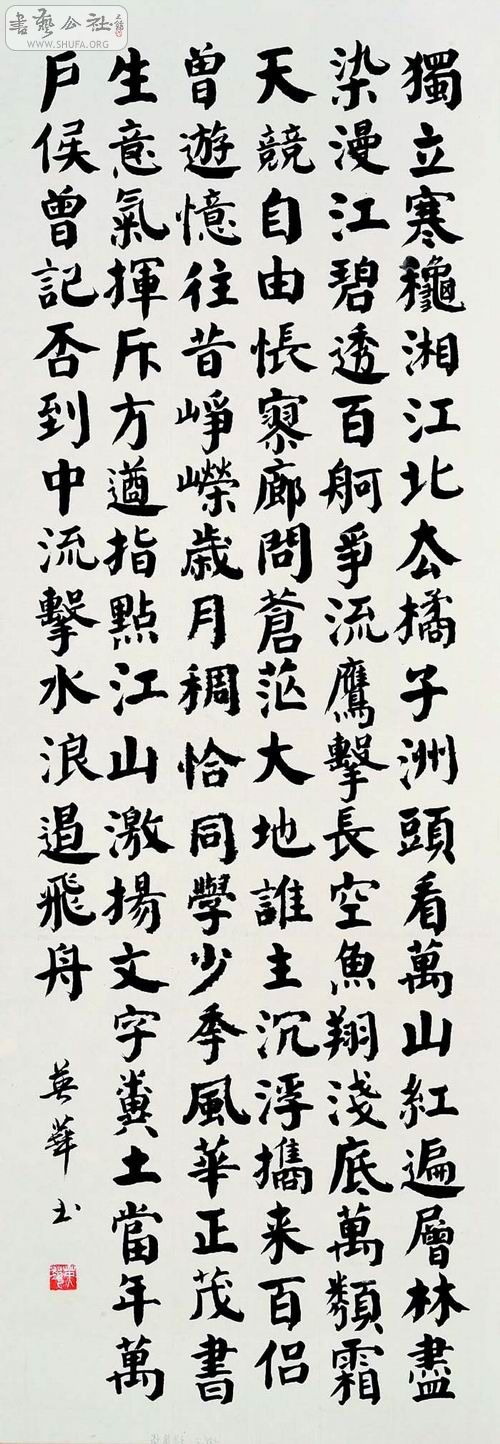 書藝公社
WWW.SHUFA.ORG
獨立寒龝湘江北去橘子洲頭看萬山紅遍層林盡
染漫江碧透百舸爭流鷹擊長空魚翔淺底萬類霜
天競自由悵寥廊問蒼茫大地誰主沉浮攜来百侣
曾遊憶往昔崢嶸歲月稠恰同學少秊風華正茂書
生意氣揮斥方遒指點江山激揚文字糞土當年萬
戶侯曾記否到中流擊水浪遏飛舟
英華书